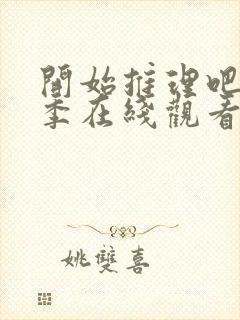 開始推理吧
季在綫觀看
姚雙喜